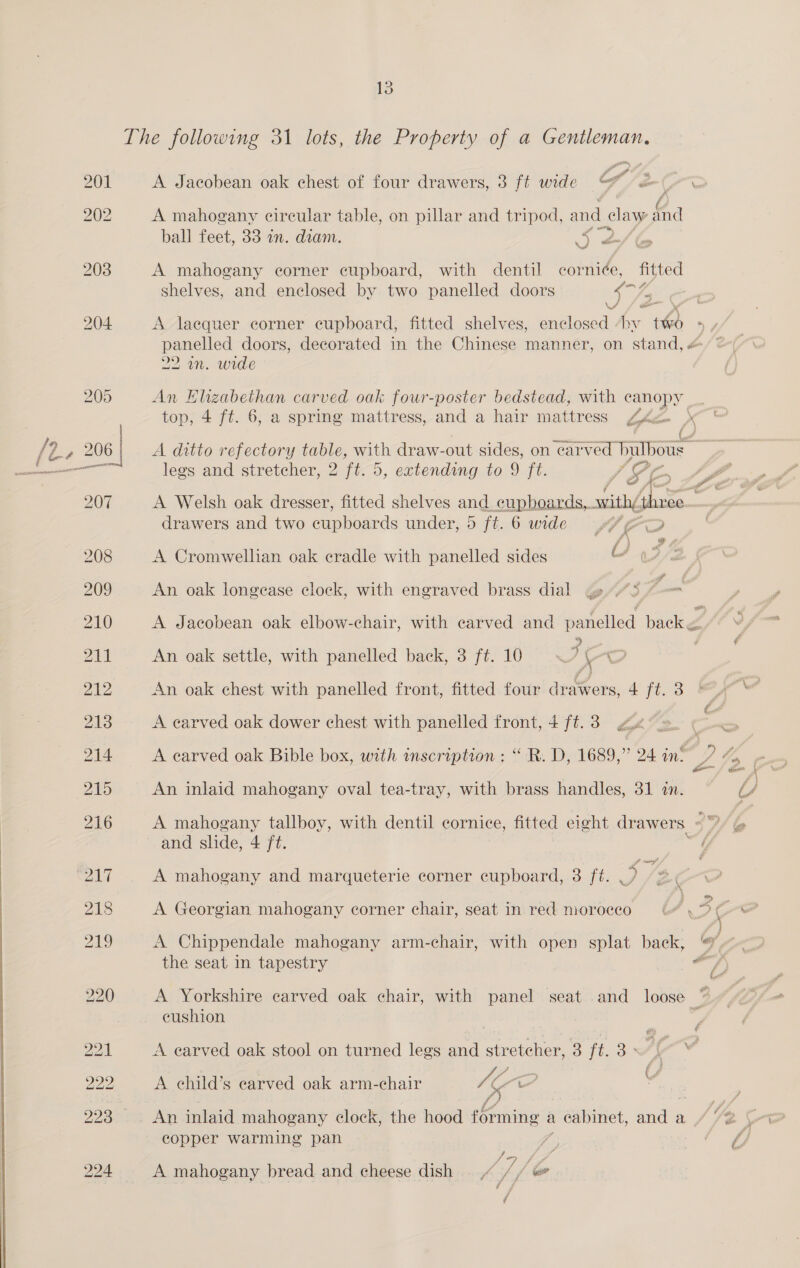 13
The following 31 lots, the Property of a Gentleman.
201 A Jacobean oak chest of four drawers, 3 ft wide
202 A mahogany circular table, on pillar and tripod, and claw and
ball feet, 33 in. diam.
203 A mahogany corner cupboard, with dentil cornice, fitted
shelves, and enclosed by two panelled doors
204 A lacquer corner cupboard, fitted shelves, enclosed by two
panelled doors, decorated in the Chinese manner, on stand,
22 in. wide
205 An Elizabethan carved oak four-poster bedstead, with canopy
top, 4 ft. 6, a spring mattress, and a hair mattress
206 A ditto refectory table, with draw-out sides, on carved bulbous
legs and stretcher, 2 ft. 5, extending to 9 ft.
207 A Welsh oak dresser, fitted shelves and cupboards, with three
drawers and two cupboards under, 5 ft. 6 wide
208 A Cromwellian oak cradle with panelled sides
209 An oak longcase clock, with engraved brass dial
210 A Jacobean oak elbow-chair, with carved and panelled back
211 An oak settle, with panelled back, 3 ft. 10
212 An oak chest with panelled front, fitted four drawers, 4 ft. 3
213 A carved oak dower chest with panelled front, 4 ft. 3
214 A carved oak Bible box, with inscription : “ R. D, 1689,” 24 in.
215 An inlaid mahogany oval tea-tray, with brass handles, 31 in.
216 A mahogany tallboy, with dentil cornice, fitted eight drawers
and slide, 4 ft.
217 A mahogany and marqueterie corner cupboard, 3 ft.
218 A Georgian mahogany corner chair, seat in red morocco
219 A Chippendale mahogany arm-chair, with open splat back,
the seat in tapestry
220 A Yorkshire carved oak chair, with panel seat and loose
cushion
221 A carved oak stool on turned legs and stretcher, 3 ft. 3
222 A child’s carved oak arm-chair
223 An inlaid mahogany clock, the hood forming a cabinet, and a
copper warming pan
224 A mahogany bread and cheese dish